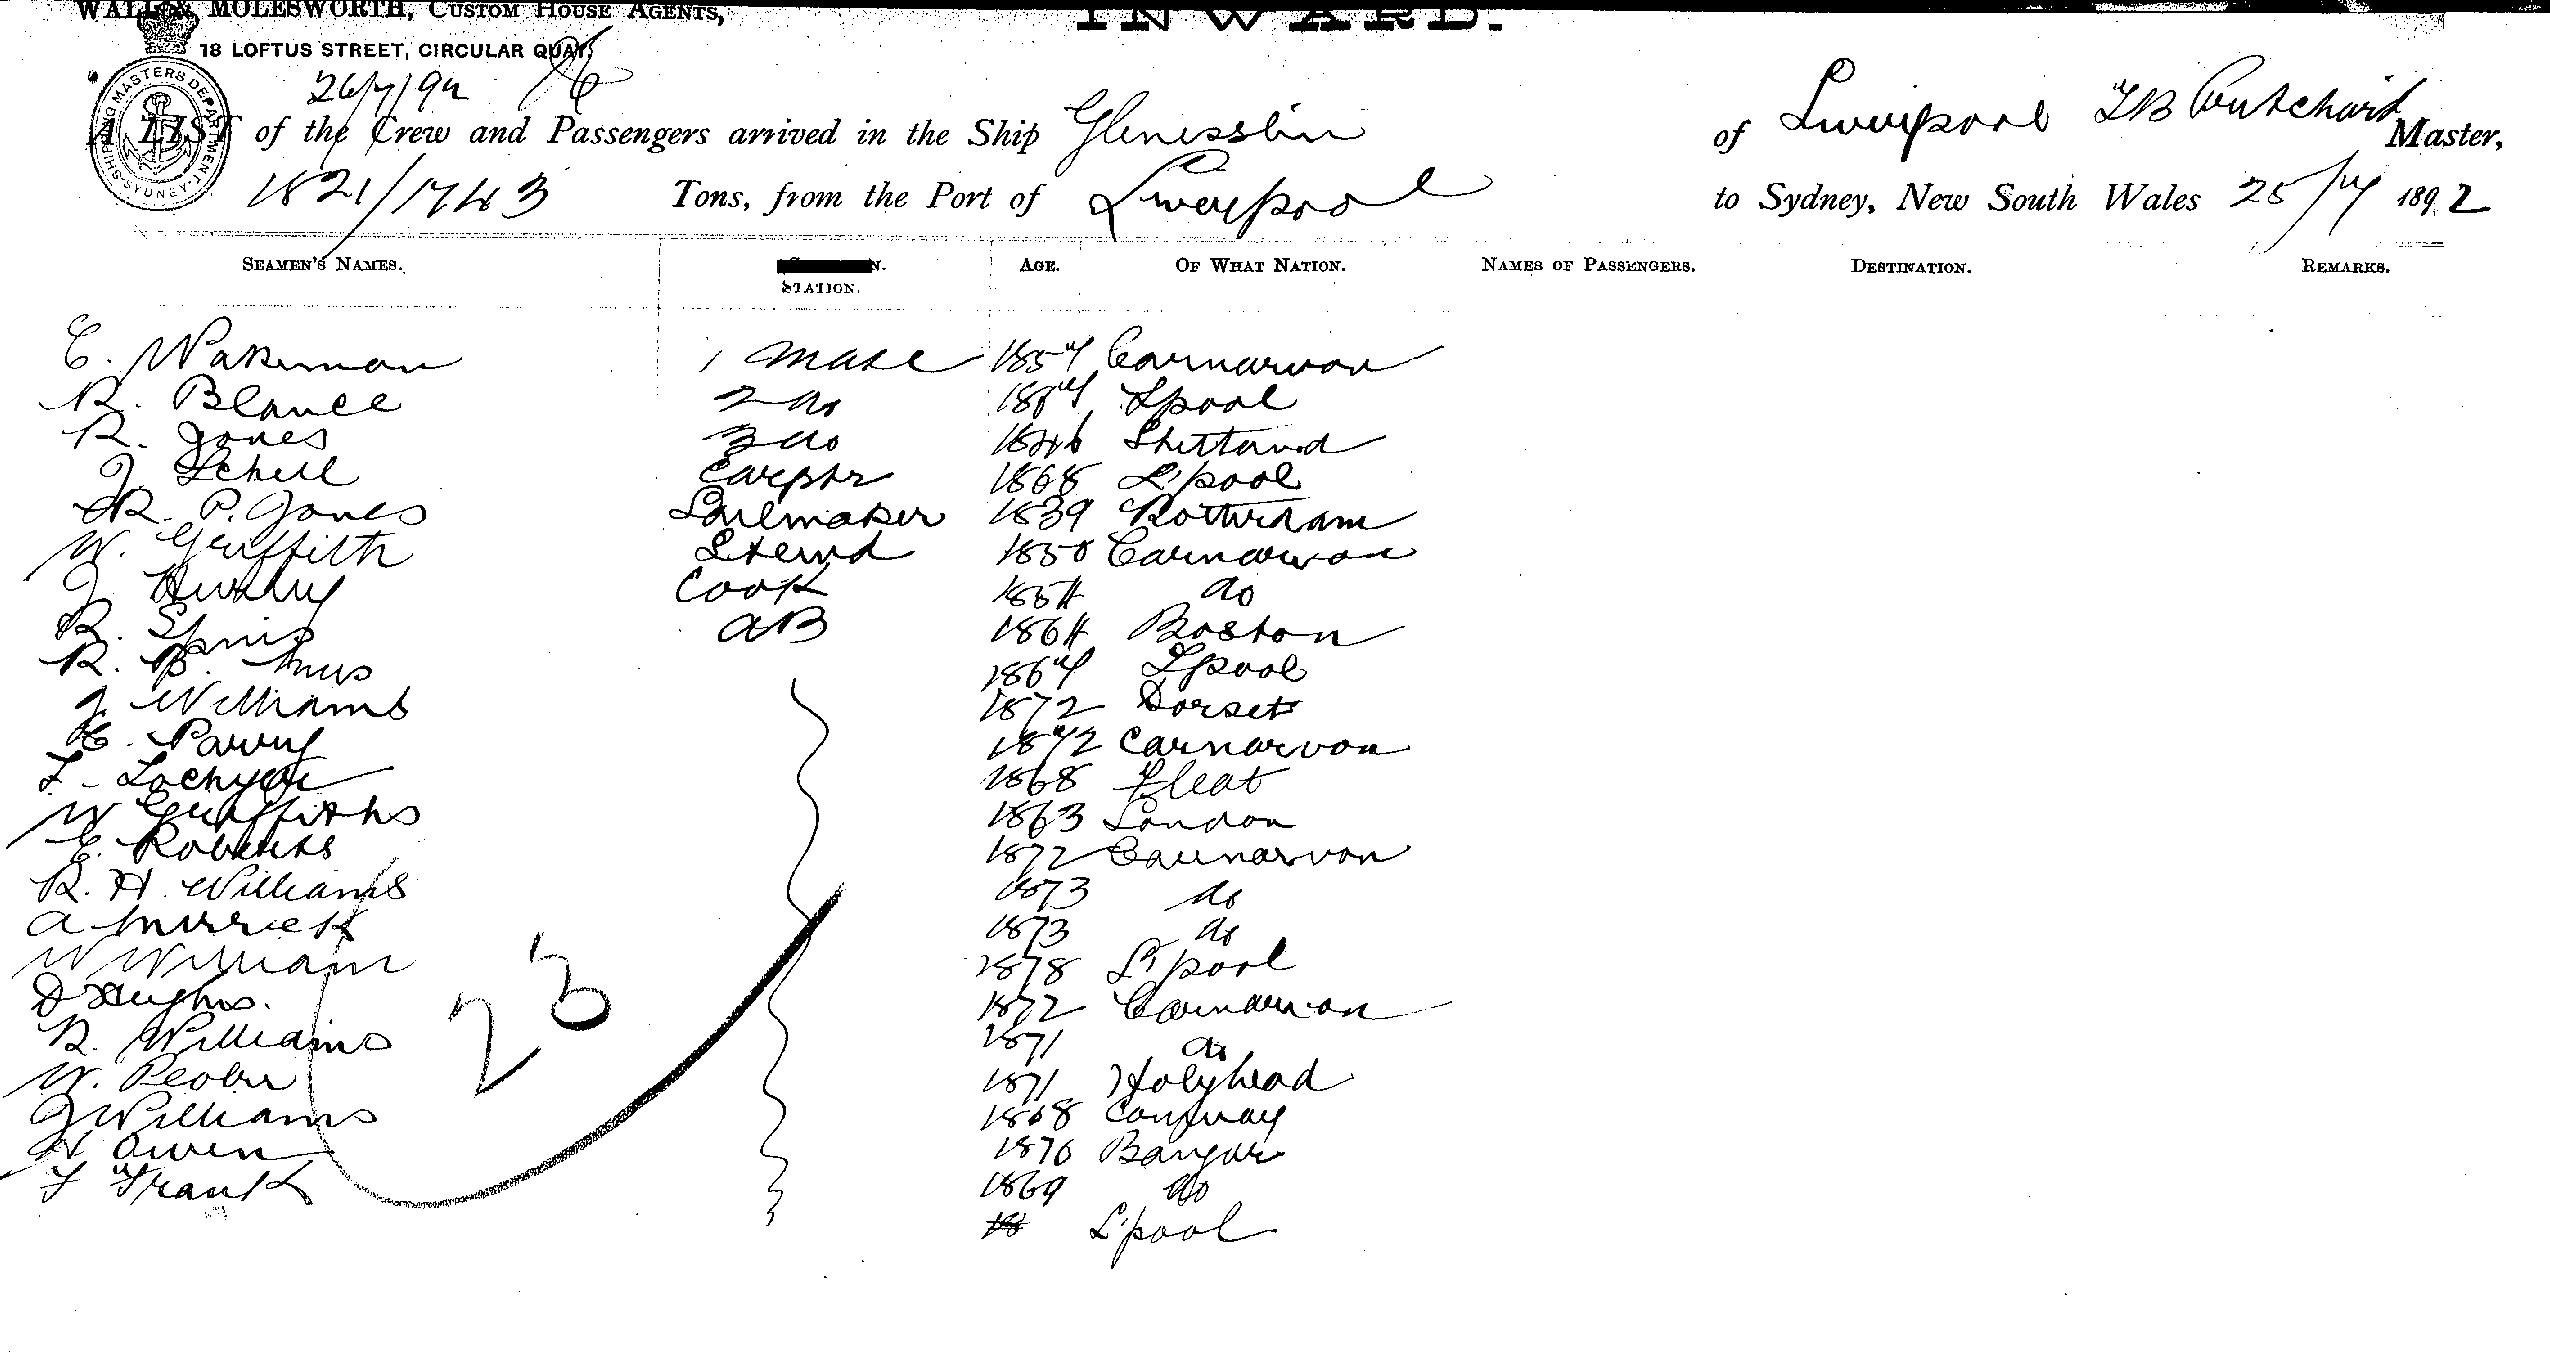 WALL & MOLESWORTH, CUSTOM HOUSE AGENTS,
INWARD.
18 LOFTUS STREET, CIRCULAR QUAY
SHIPPING MASTERS DEPARTMENT SYDNEY
26/7/92
A LIST of the Crew and Passengers arrived in the Ship Glenesslin of Liverpool Master,
1821/1743 Tons, from the Port of Liverpool to Sydney, New South Wales 25/7 1892
SEAMEN'S NAMES. STATION. AGE. OF WHAT NATION. NAMES OF PASSENGERS. DESTINATION. REMARKS.
E. Wakeman 1 Mate 1857 Carnarvon
R. Blance 2 do L'pool
R. Jones 3 do Shetland
J. Schell Carptr 1868 L'pool
R. P. Jones Sailmaker 1839 Rotterdam
W. Griffith Steward 1850 Carnarvon
J. Cook 1854 do
R. AB 1864 Boston
R. 1867 L'pool
J. Williams 1872 Dorset
E. Parry 1872 Carnarvon
1868
W Griffiths 1863 London
E. Roberts 1872 Carnarvon
R. H. Williams 1873 do
A 1873 do
W William 1878 L'pool
D Hughes. 1872 Carnarvon
R. Williams 1871 do
W. 1871 Holyhead
J Williams 1868 Conway
H Owen 1870 Bangor
F Frank 1869 do
L'pool
23